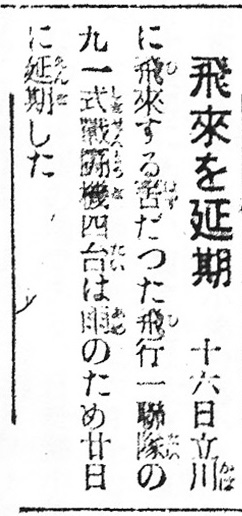 飛來を延期　十六日立川
に飛來する筈だつた飛行一聯隊の
九一式戰鬪機四台は雨のため廿日
に延期した